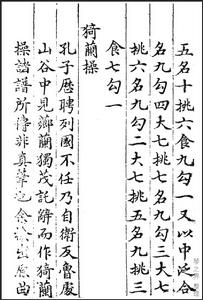 五名十挑六食九勾一又以中泛合
名九勾四大七挑七名九勾三大七
挑六名九勾二大七挑五名九挑三
食七勾一
猗蘭操
孔子歷聘列國不任乃自衛反魯處
山谷中見薌蘭獨茂託辭而作猗蘭
操諸譜所傳非真